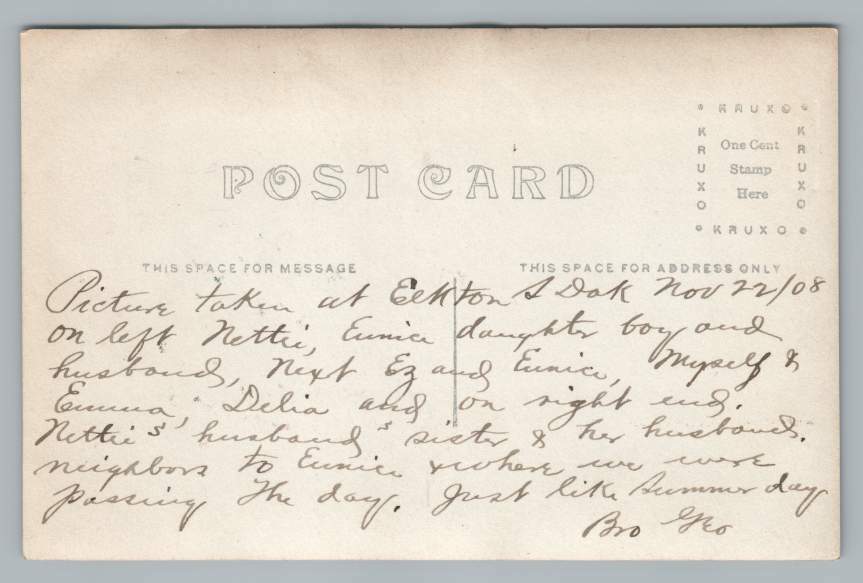 KRUXO
KRUXO
KRUXO
One Cent
Stamp
Here
KRUXO
POST CARD
THIS SPACE FOR MESSAGE
THIS SPACE FOR ADDRESS ONLY
Picture taken at Elkton S Dak Nov 22/08
on left Nettie, Eunice daughter boy and
husband, Next Ez and Eunice, Myself &
Emma, Delia and on right end.
Nettie's husband's sister & her husband.
neighbors to Eunice & where we were
passing the day. Just like Summer day
Bro Geo